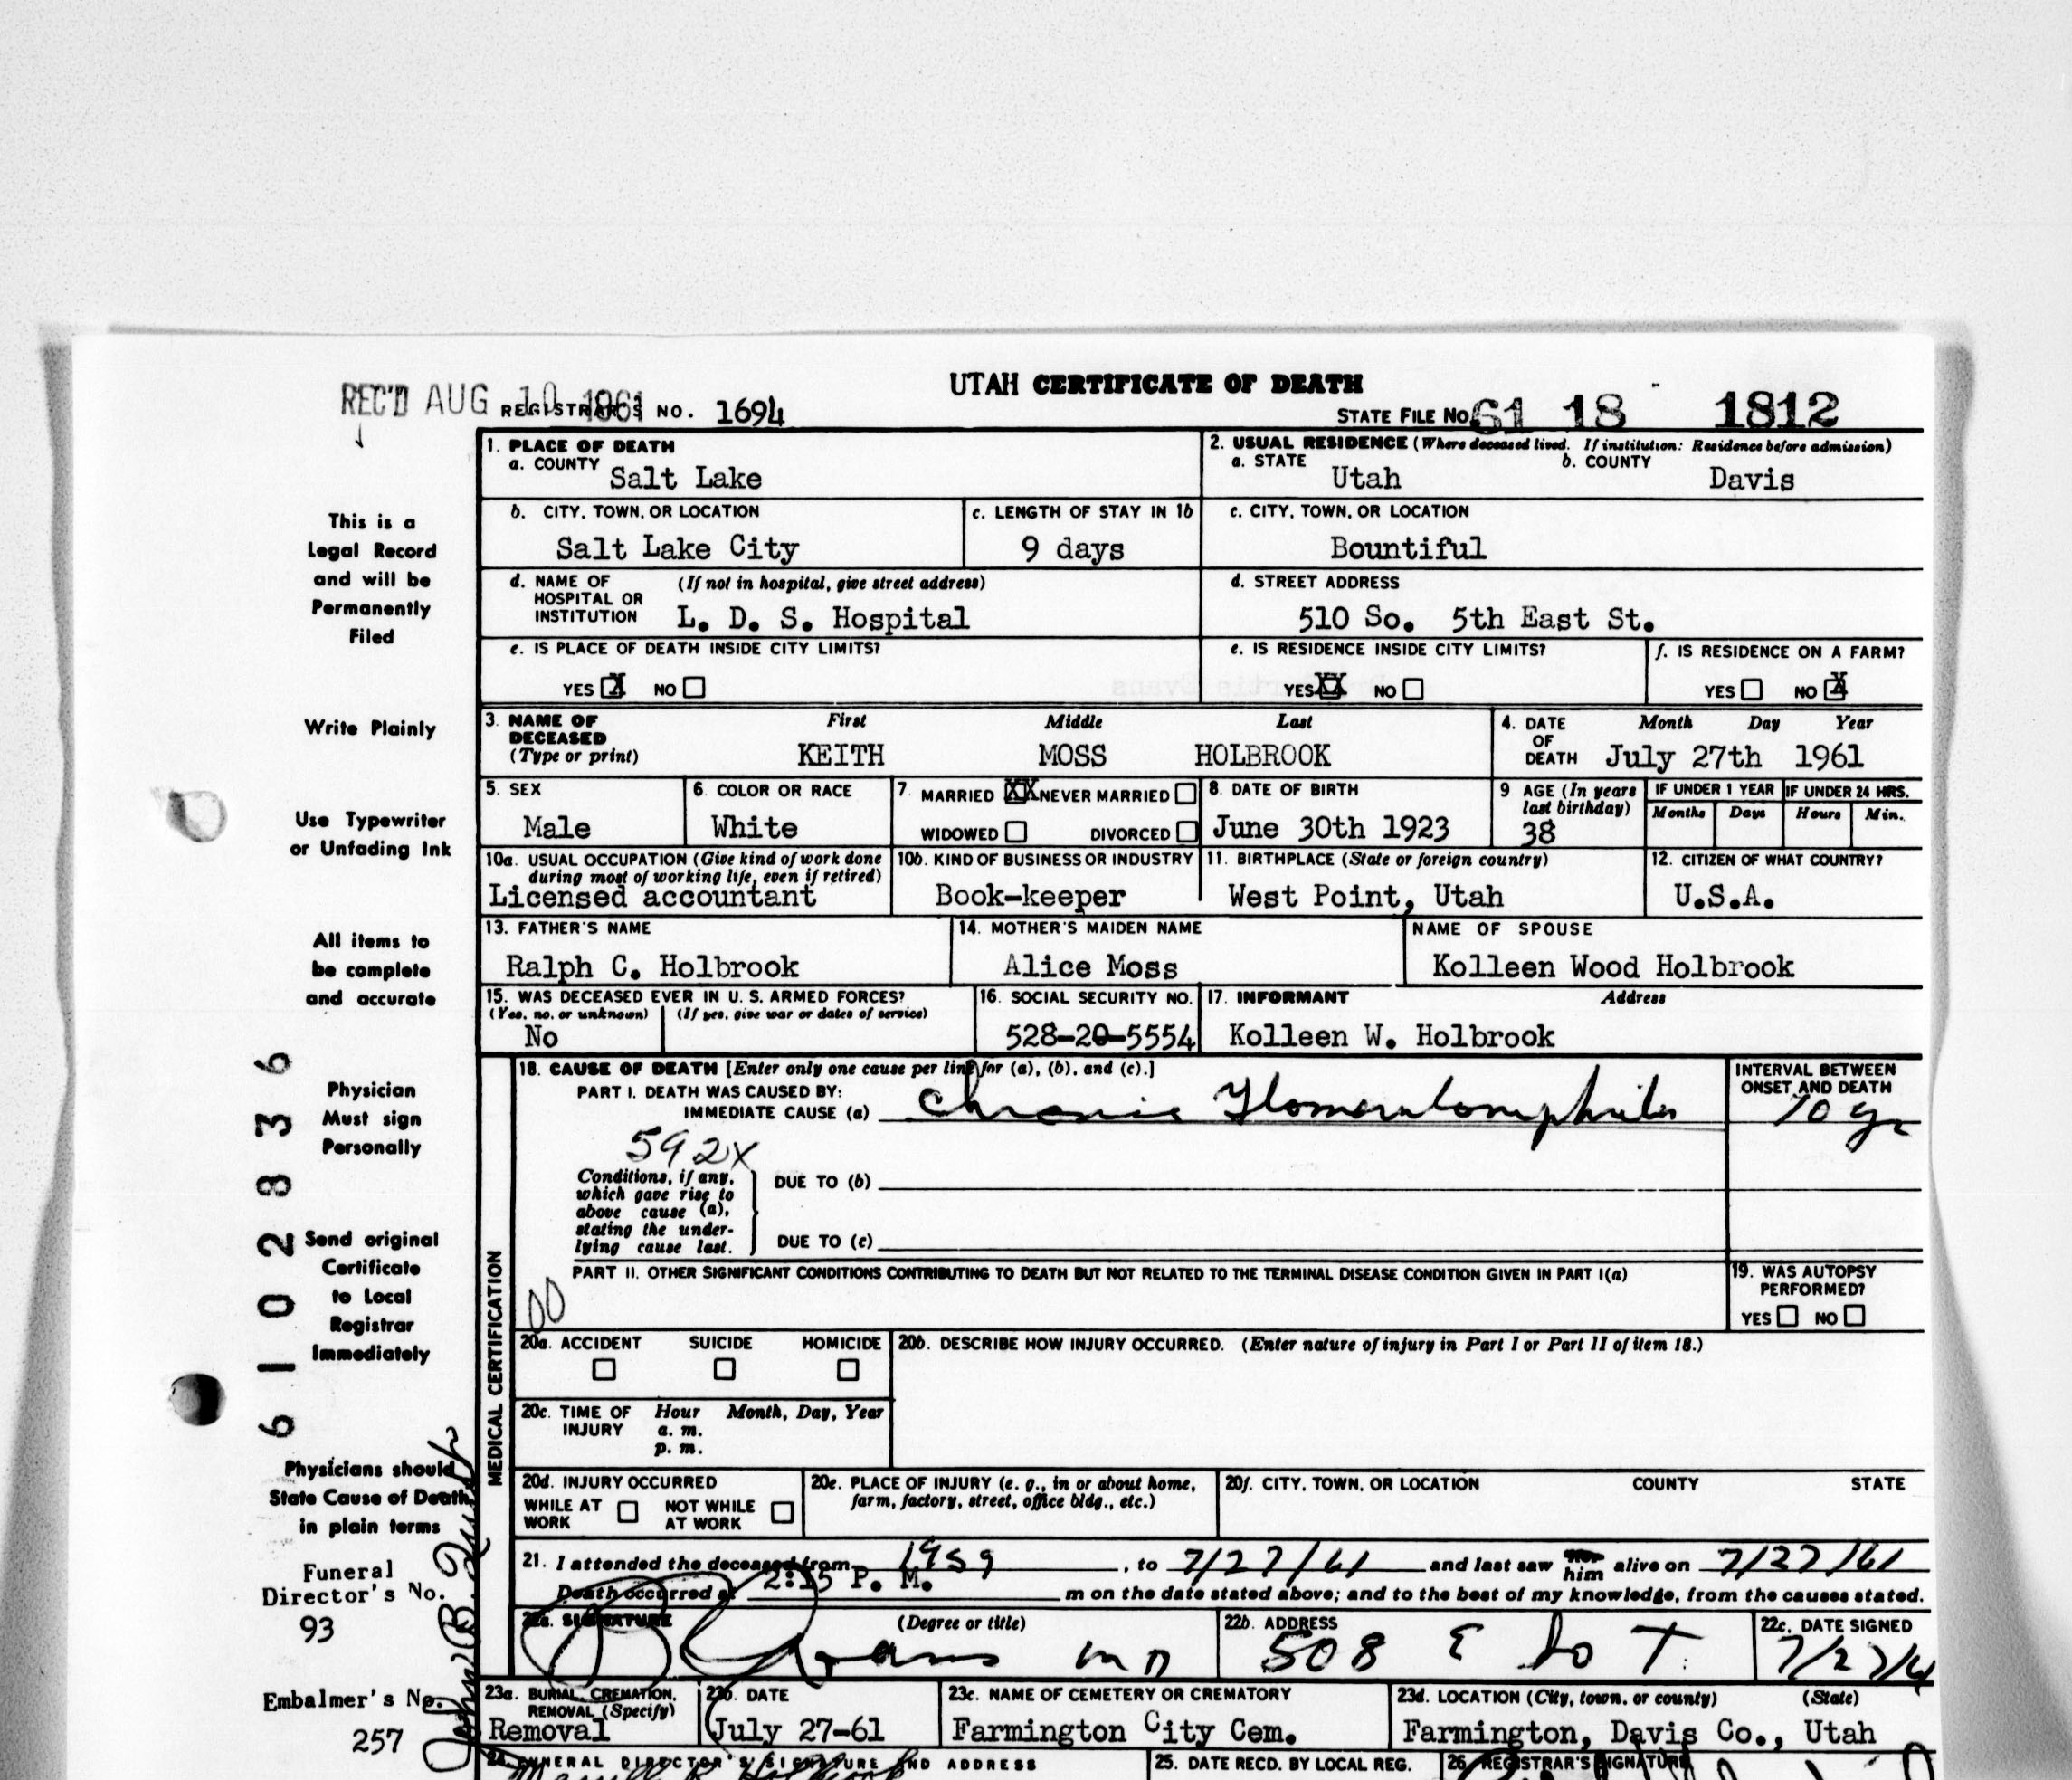 UTAH CERTIFICATE OF DEATH
REC'D AUG 10 1961 REGISTRAR'S NO. 1694
STATE FILE NO. 61 18 1812
1. PLACE OF DEATH
a. COUNTY Salt Lake
2. USUAL RESIDENCE (Where deceased lived. If institution: Residence before admission)
a. STATE Utah b. COUNTY Davis
b. CITY, TOWN, OR LOCATION Salt Lake City
c. LENGTH OF STAY IN 1b 9 days
c. CITY, TOWN, OR LOCATION Bountiful
d. NAME OF HOSPITAL OR INSTITUTION (If not in hospital, give street address) L. D. S. Hospital
d. STREET ADDRESS 510 So. 5th East St.
e. IS PLACE OF DEATH INSIDE CITY LIMITS?
YES X NO
e. IS RESIDENCE INSIDE CITY LIMITS?
YES XX NO
f. IS RESIDENCE ON A FARM?
YES NO X
3. NAME OF DECEASED (Type or print) First Middle Last
KEITH MOSS HOLBROOK
4. DATE OF DEATH Month Day Year
July 27th 1961
5. SEX Male
6. COLOR OR RACE White
7. MARRIED XX NEVER MARRIED
WIDOWED DIVORCED
8. DATE OF BIRTH June 30th 1923
9 AGE (In years last birthday) 38
IF UNDER 1 YEAR Months Days
IF UNDER 24 HRS. Hours Min.
10a. USUAL OCCUPATION (Give kind of work done during most of working life, even if retired)
Licensed accountant
10b. KIND OF BUSINESS OR INDUSTRY Book-keeper
11. BIRTHPLACE (State or foreign country) West Point, Utah
12. CITIZEN OF WHAT COUNTRY? U.S.A.
13. FATHER'S NAME Ralph C. Holbrook
14. MOTHER'S MAIDEN NAME Alice Moss
NAME OF SPOUSE Kolleen Wood Holbrook
15. WAS DECEASED EVER IN U. S. ARMED FORCES?
(Yes, no, or unknown) (If yes, give war or dates of service)
No
16. SOCIAL SECURITY NO. 528-20-5554
17. INFORMANT Address
Kolleen W. Holbrook
MEDICAL CERTIFICATION
18. CAUSE OF DEATH [Enter only one cause per line for (a), (b), and (c).]
PART I. DEATH WAS CAUSED BY:
IMMEDIATE CAUSE (a) Chronic
INTERVAL BETWEEN ONSET AND DEATH
10 yr
592X
Conditions, if any, which gave rise to above cause (a), stating the underlying cause last.
DUE TO (b)
DUE TO (c)
PART II. OTHER SIGNIFICANT CONDITIONS CONTRIBUTING TO DEATH BUT NOT RELATED TO THE TERMINAL DISEASE CONDITION GIVEN IN PART I(a)
00
19. WAS AUTOPSY PERFORMED?
YES NO
20a. ACCIDENT SUICIDE HOMICIDE
20b. DESCRIBE HOW INJURY OCCURRED. (Enter nature of injury in Part I or Part II of item 18.)
20c. TIME OF INJURY Hour Month, Day, Year
a. m.
p. m.
20d. INJURY OCCURRED
WHILE AT WORK NOT WHILE AT WORK
20e. PLACE OF INJURY (e. g., in or about home, farm, factory, street, office bldg., etc.)
20f. CITY, TOWN, OR LOCATION COUNTY STATE
21. I attended the deceased from 1959, to 7/27/61 and last saw him alive on 7/27/61
Death occurred at 2:15 P. M. m on the date stated above; and to the best of my knowledge, from the causes stated.
22a. SIGNATURE (Degree or title)
Evans MD
22b. ADDRESS 508 E So T.
22c. DATE SIGNED
23a. BURIAL, CREMATION, REMOVAL (Specify) Removal
23b. DATE July 27-61
23c. NAME OF CEMETERY OR CREMATORY Farmington City Cem.
23d. LOCATION (City, town, or county) (State)
Farmington, Davis Co., Utah
24. FUNERAL DIRECTOR'S SIGNATURE AND ADDRESS
25. DATE RECD. BY LOCAL REG.
26. REGISTRAR'S SIGNATURE
This is a
Legal Record
and will be
Permanently
Filed
Write Plainly
Use Typewriter
or Unfading Ink
All items to
be complete
and accurate
Physician
Must sign
Personally
Send original
Certificate
to Local
Registrar
Immediately
Physicians should
State Cause of Death
in plain terms
Funeral
Director's No.
93
Embalmer's No.
257
6102836